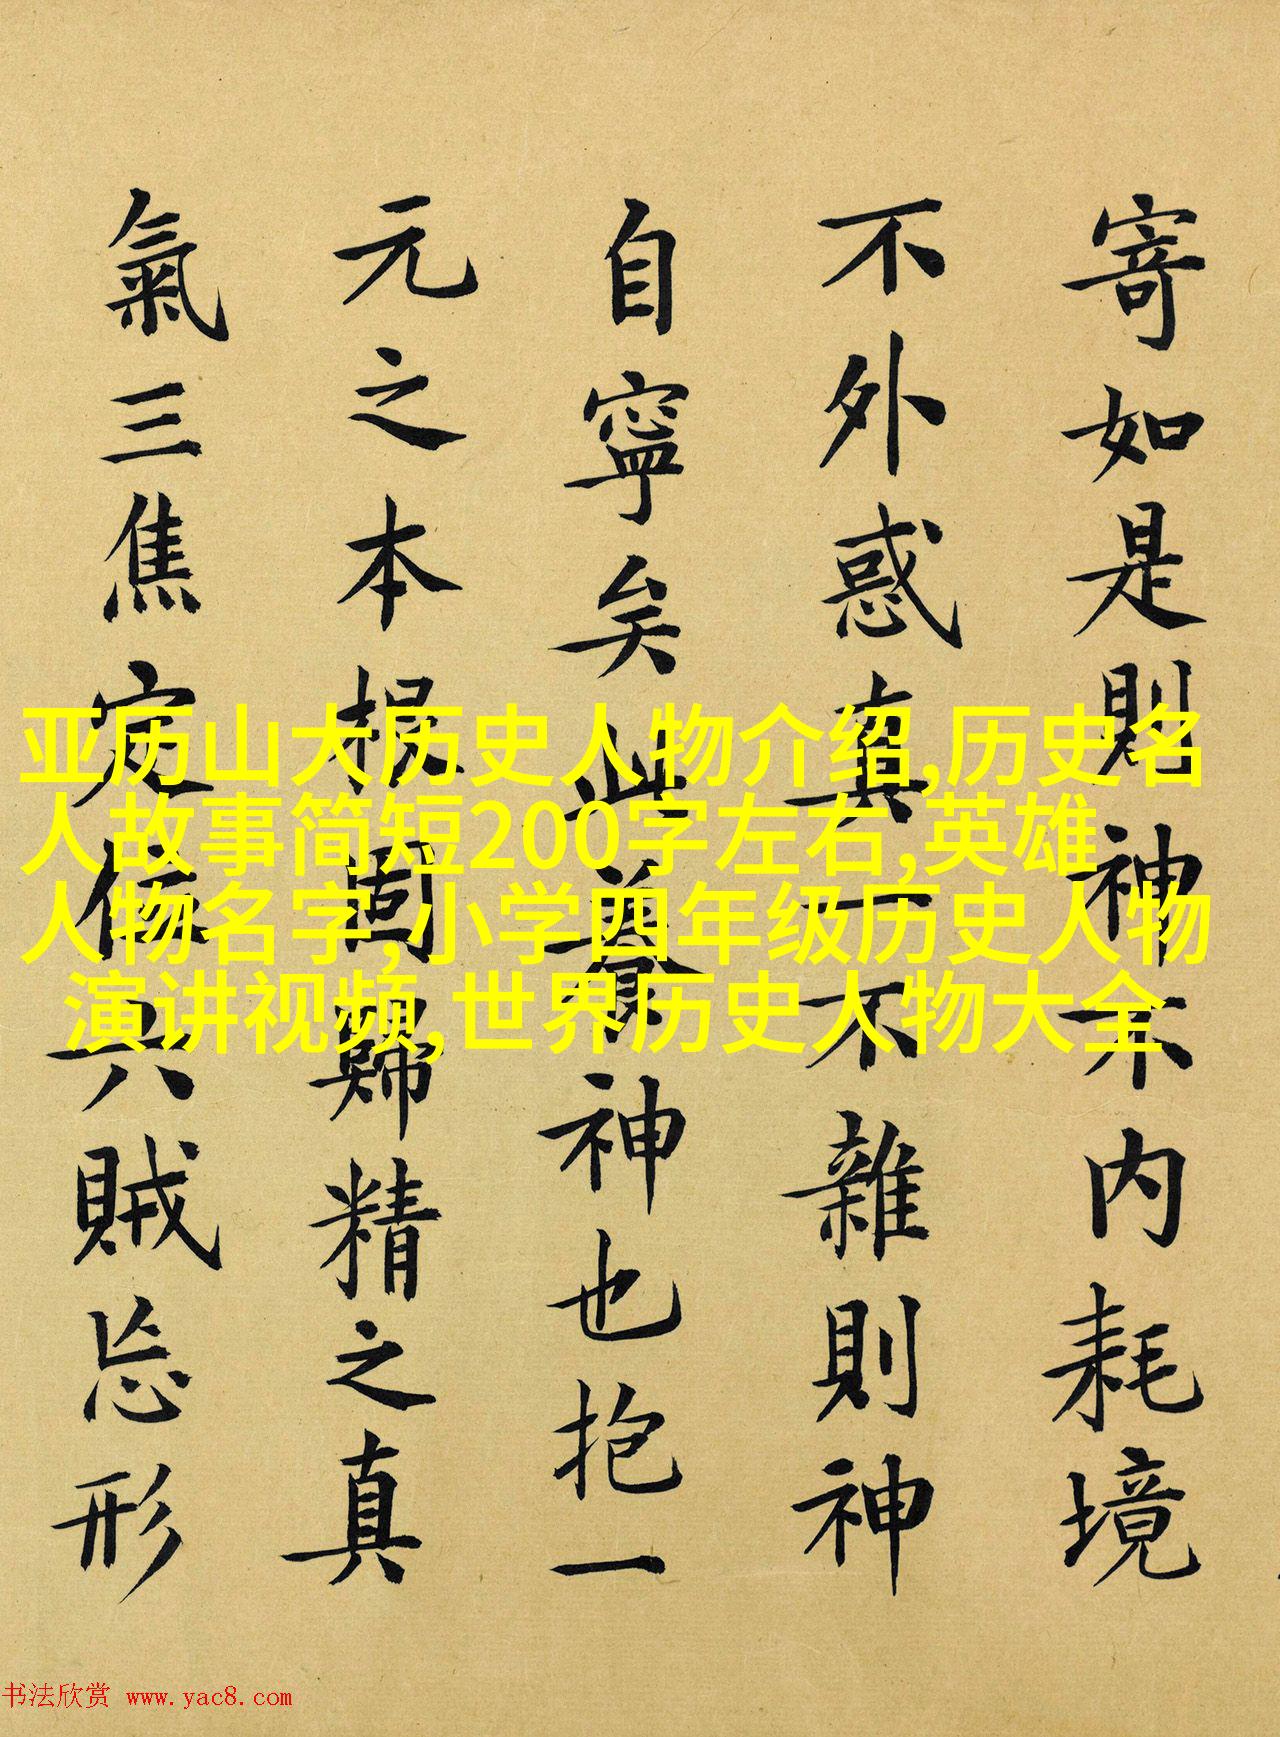 寄如是則神不内耗境
不外惑真一不雜則神
自寧矣此養神也抱一
元之本根固歸精之真
氣三焦定位六賊忘形
亚历山大历史人物介绍,历史名
人故事简短200字左右,英雄
人物名字,小学四年级历史人物
演讲视频,世界历史人物大全
书法欣赏 www.yac8.com